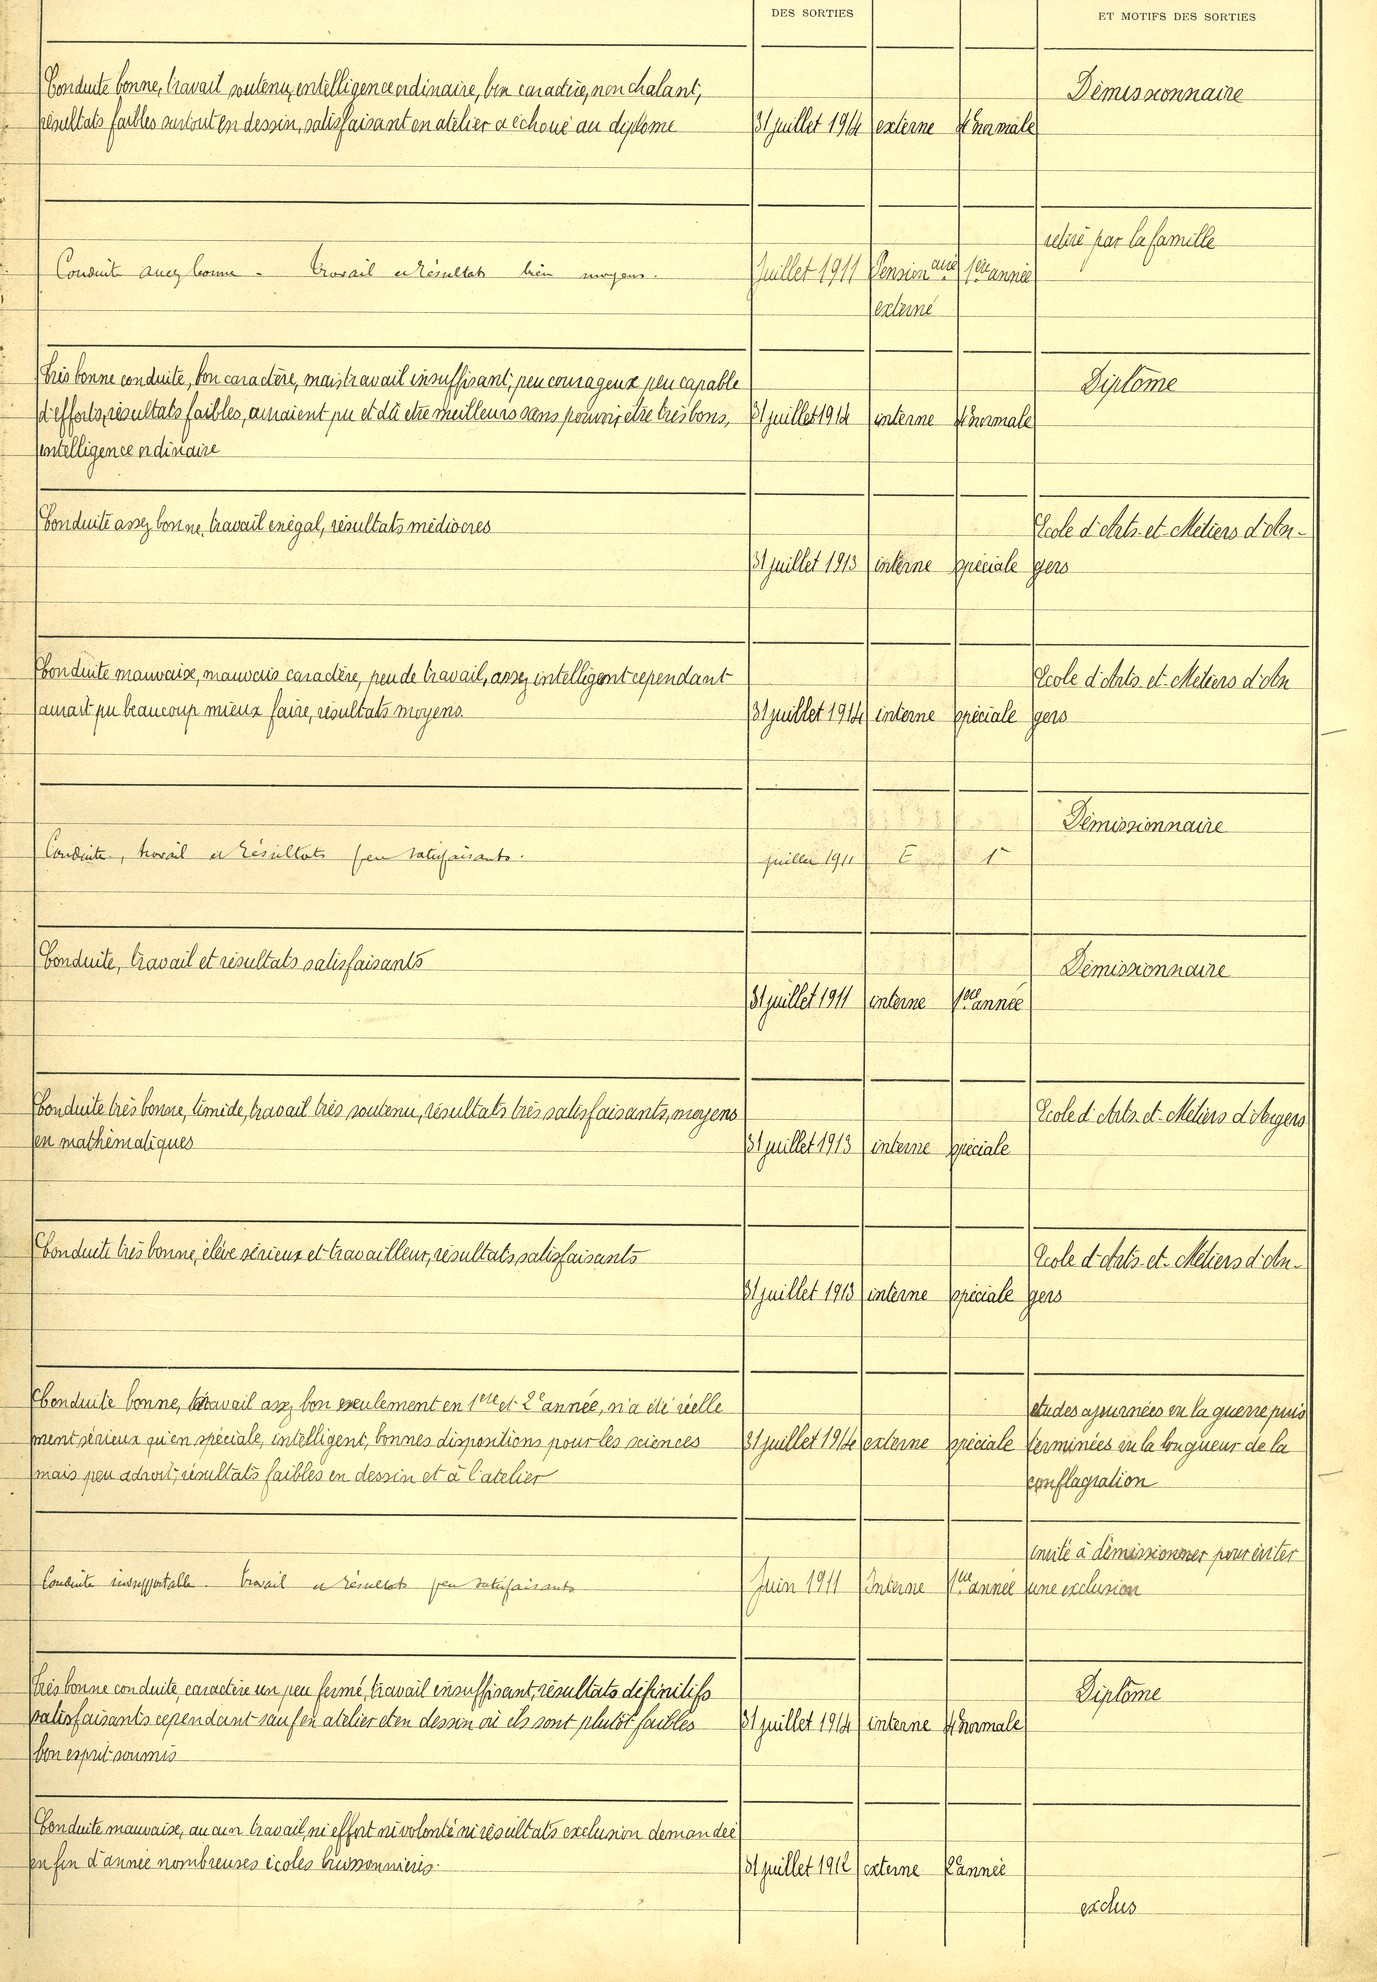 DES SORTIES
ET MOTIFS DES SORTIES
Conduite bonne, travail soutenu, intelligence ordinaire, bon caractère, nonchalant,
résultats faibles surtout en dessin, satisfaisant en atelier a échoué au diplome
31 juillet 1914 externe 4e normale
Démissionnaire
Conduite assez bonne - Travail et résultats bien moyens.
Juillet 1911 Pensionaire 1ère année
externé
retiré par la famille
Très bonne conduite, bon caractère, mais travail insuffisant, peu courageux peu capable
d'efforts, résultats faibles, auraient pu et dû etre meilleurs sans pouvoir être très bons,
intelligence ordinaire
31 juillet 1914 interne 4e normale
Diplôme
Conduite assez bonne, travail inégal, résultats médiocres
31 juillet 1913 interne spéciale
Ecole d'Arts-et-Métiers d'An-
gers
Conduite mauvaise, mauvais caractère, peu de travail, assez intelligent cependant
aurait pu beaucoup mieux faire, résultats moyens.
31 juillet 1914 interne spéciale
Ecole d'Arts-et-Métiers d'An
gers
Conduite, travail et résultats peu satisfaisants.
juillet 1911 E 1e
Démissionnaire
Conduite, travail et résultats satisfaisants
31 juillet 1911 interne 1ère année
Démissionnaire
Conduite très bonne, timide, travail très soutenu, résultats très satisfaisants, moyens
en mathématiques
31 juillet 1913 interne spéciale
Ecole d'Arts-et-Métiers d'Angers
Conduite très bonne, élève sérieux et travailleur, résultats satisfaisants
31 juillet 1913 interne spéciale
Ecole d'Arts-et-Métiers d'An-
gers
Conduite bonne, travail assez bon seulement en 1ere et 2e année, n'a été réelle
ment sérieux qu'en spéciale, intelligent, bonnes dispositions pour les sciences
mais peu adroit, résultats faibles en dessin et à l'atelier
31 juillet 1914 externe spéciale
etudes ajournées vu la guerre puis
terminées vu la longueur de la
conflagration
Conduite insupportable. Travail et résultats peu satisfaisants
Juin 1911 Interne 1ère année
invité à démissionner pour éviter
une exclusion
Très bonne conduite, caractère un peu fermé, travail insuffisant, résultats définitifs
satisfaisants cependant sauf en atelier et en dessin où ils sont plutôt faibles
bon esprit soumis
31 juillet 1914 interne 4e normale
Diplôme
Conduite mauvaise, aucun travail, ni effort ni volonté ni résultats exclusion demandée
en fin d'année nombreuses écoles buissonnières.
31 juillet 1912 externe 2e année
exclus